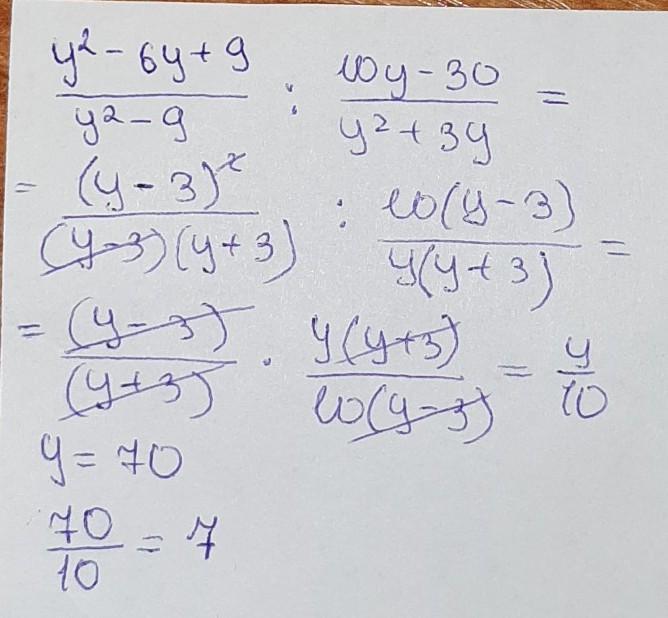 (y² - 6y + 9)/(y² - 9) : (10y - 30)/(y² + 3y) =
= (y - 3)²/((y - 3)(y + 3)) : 10(y - 3)/(y(y + 3)) =
= (y - 3)/(y + 3) · y(y + 3)/(10(y - 3)) = y/10
y = 70
70/10 = 7